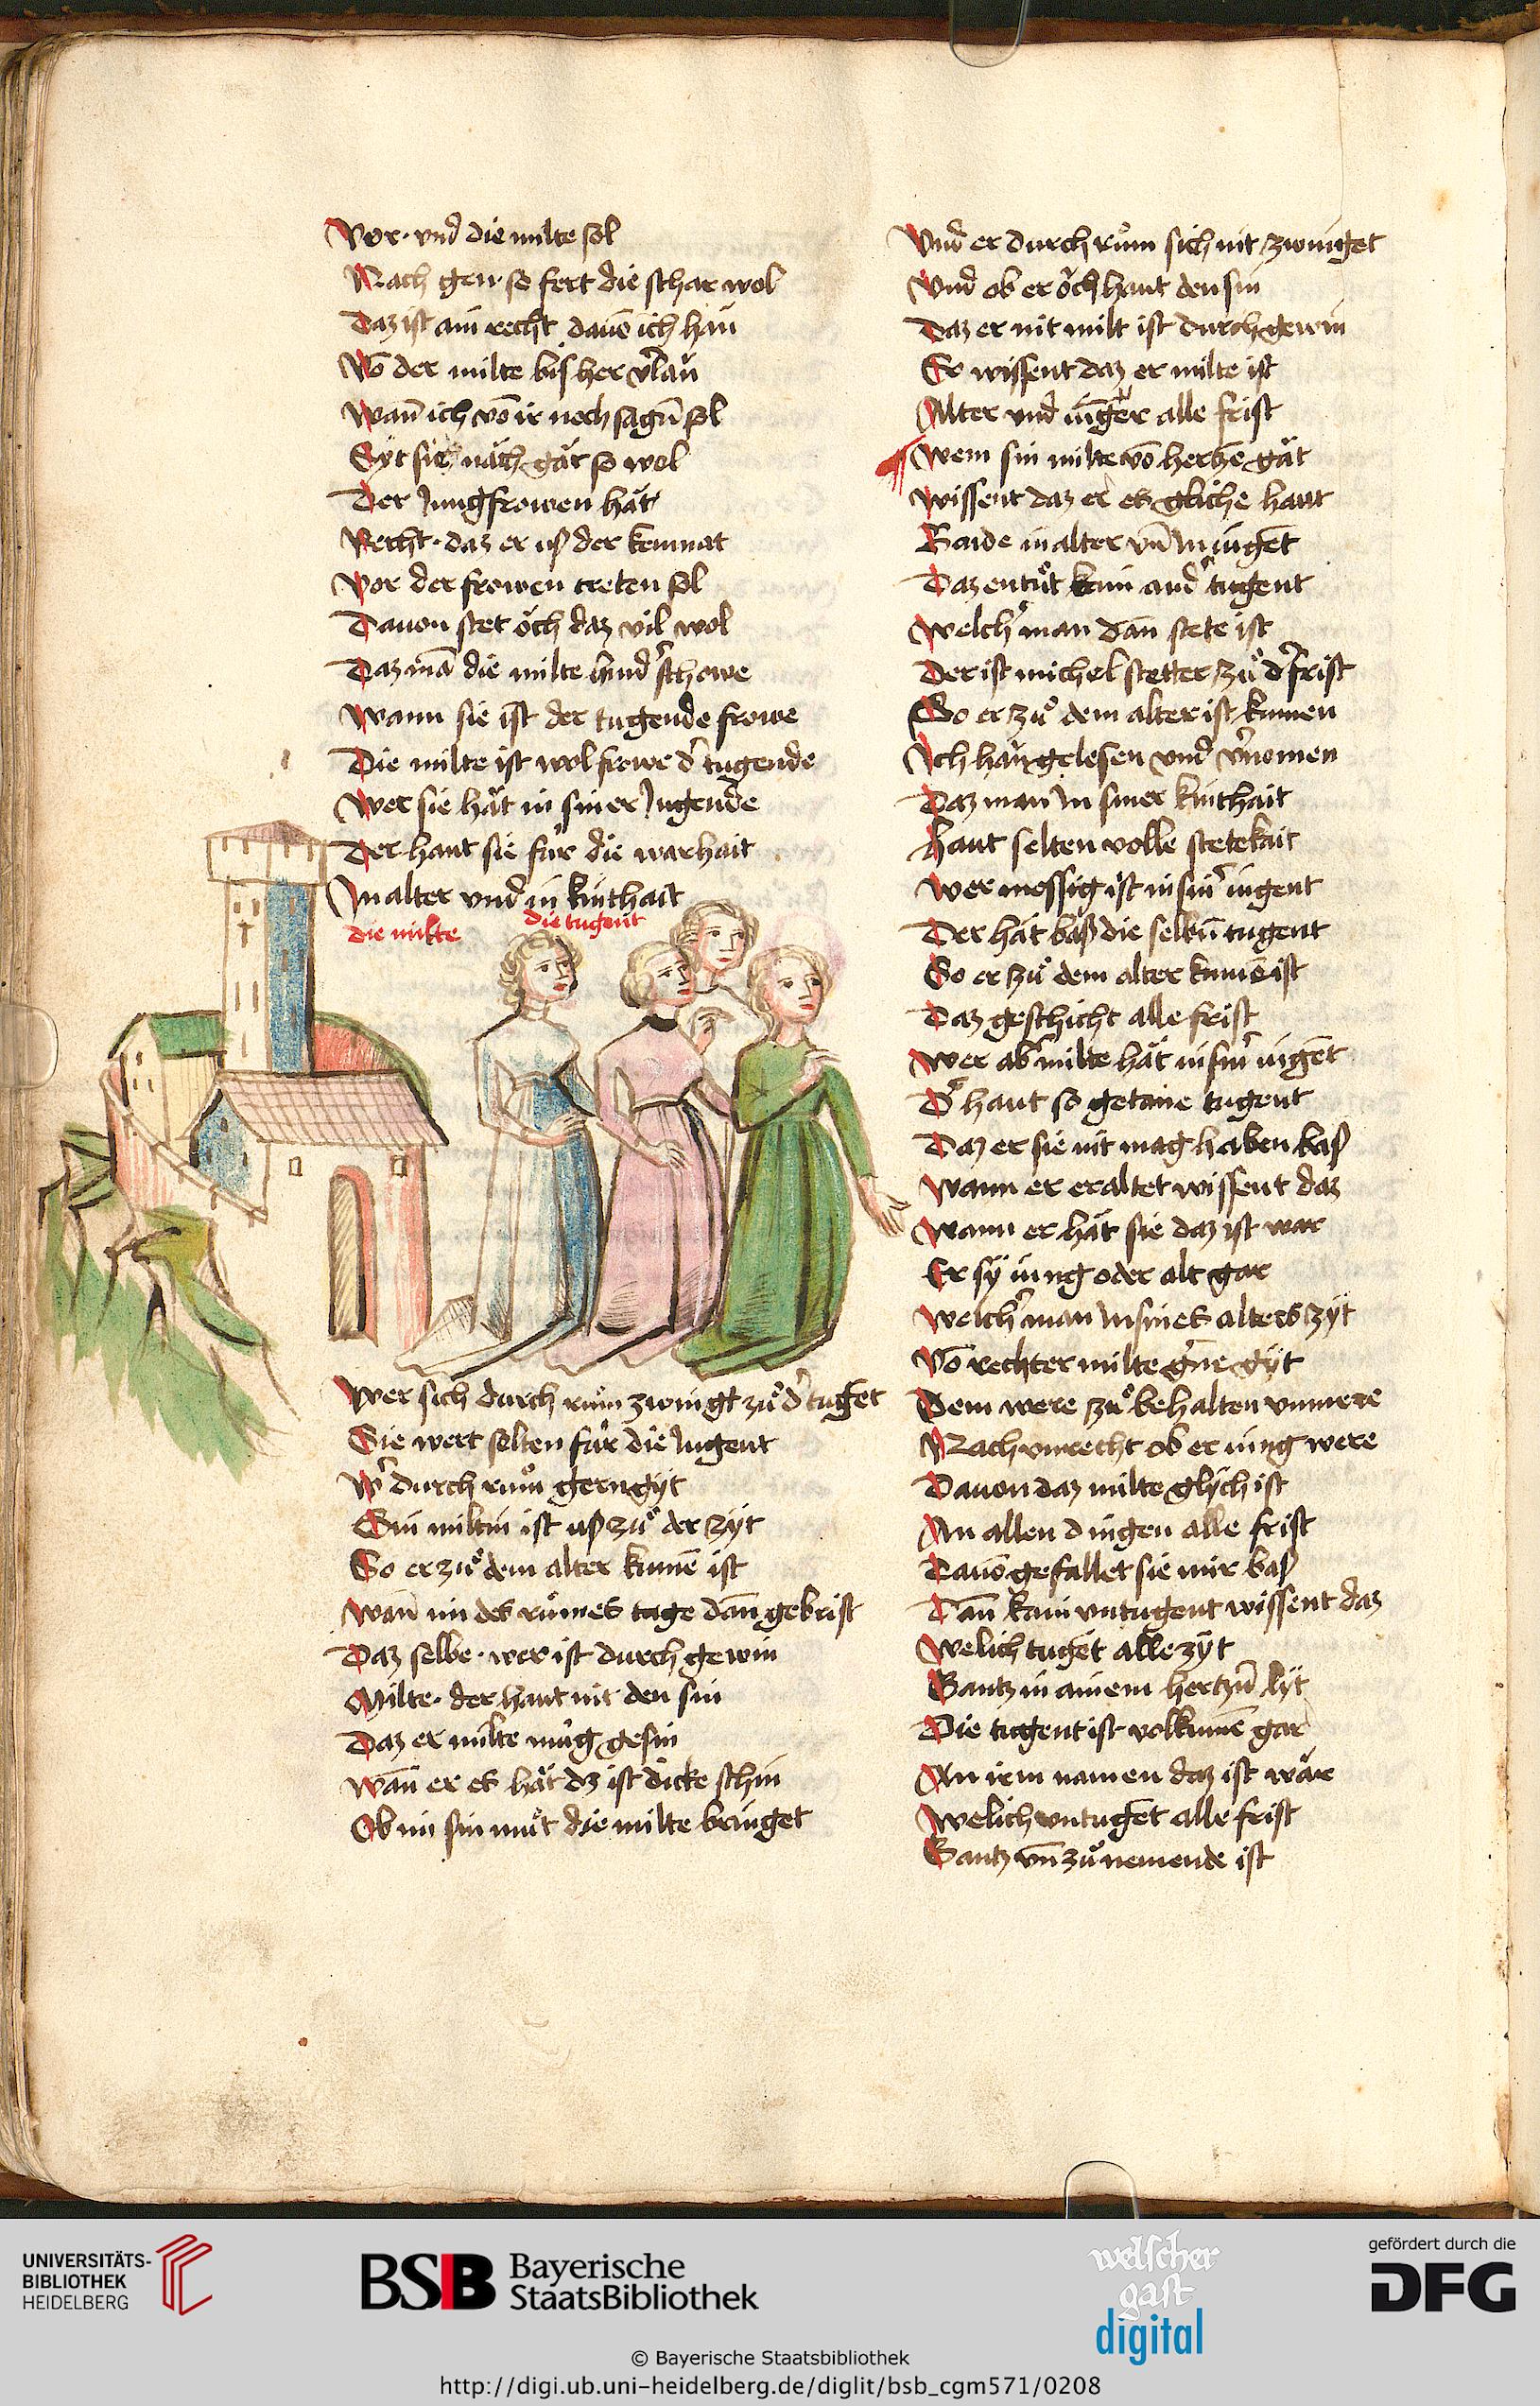 Vor · vnd die milte sol
Nach gen · so fert die schar wol
Daz ist ain recht dauō ich han
Vō der milte bis her v'lan
Wan̄ ich vō ir noch sagn̄ sol
Syt sie nach gät so wol
Der Jungfrowen hät
Recht · daz er uß der kemnat
Vor der frowen treten sol
Dauon stet öch daz vil wol
Daz mā die milte hind' schowe
Wann sie ist der tugende frowe
Die milte ist wol frowe d' tugende
Wer sie hät in siner Jugende
Der hant sie für die warhait
In alter vnd in kinthait
die milte
die tugent
Wer sich durch rům zwingt zů d' tuget
Sie wert selten für die Jugent
W' durch rům gern gyt
Sin miltin ist uß zů der zyt
So er zů dem alter kumē ist
Wan̄ im des růmes tage dan̄ gebrist
Daz selbe · wer ist durch gewin
Milte · der hant nit den sin
Daz er milte müg gesin
Wan̄ er es hät dz ist dicke schin
Ob im sin müt die milte bringet
Vnd er durch rům sich nit zwinget
Vnd ob er öch hant den sin
Daz er nit milt ist durch gewin
Er wissent daz er milte ist
Alter vnd iūger alle frist
Wem sin milte vō hertzē gät
Wissent daz er es gliche hant
Baide in alter vn̄ In iugēt
Daz entůt kein and' tugent
Welch' man dan̄ stete ist
Der ist michel stetter zů d' frist
So er zů dem alter ist kumen
Ich han gelesen vnd v'nomen
Daz man In siner kinthait
Hant selten volle stetekait
Wer messig ist in sin' iugent
Der hät baß die selbn̄ tugent
So er zů dem alter kumē ist
Daz geschicht alle frist
Wer ab' milte hät in sin' iugēt
D' hant so getane tugent
Daz er sie nit mag haben baß
Wann er eraltet wissent daz
Wann er hät sie daz ist war
Er sy iung oder alt gar
Welch' man In sines alters zyt
Vō rechter milte g'ne gyt
Dem were zů behalten vnmere
Nach vnrecht ob er iung were
Dauon daz milte glych ist
An allen dingen alle frist
Dauō gefallet sie mir baß
Dan̄ kain vntugent wissent daz
Welich tugēt alle zyt
Gantz in ainem hertzn̄ lyt
Die tugent ist volkumē gar
An irem namen daz ist wär
Welich vntugēt alle frist
Gantz vn̄ zů nemende ist
UNIVERSITÄTS-
BIBLIOTHEK
HEIDELBERG
BSB Bayerische
StaatsBibliothek
welscher
gast
digital
gefördert durch die
DFG
© Bayerische Staatsbibliothek
http://digi.ub.uni-heidelberg.de/diglit/bsb_cgm571/0208